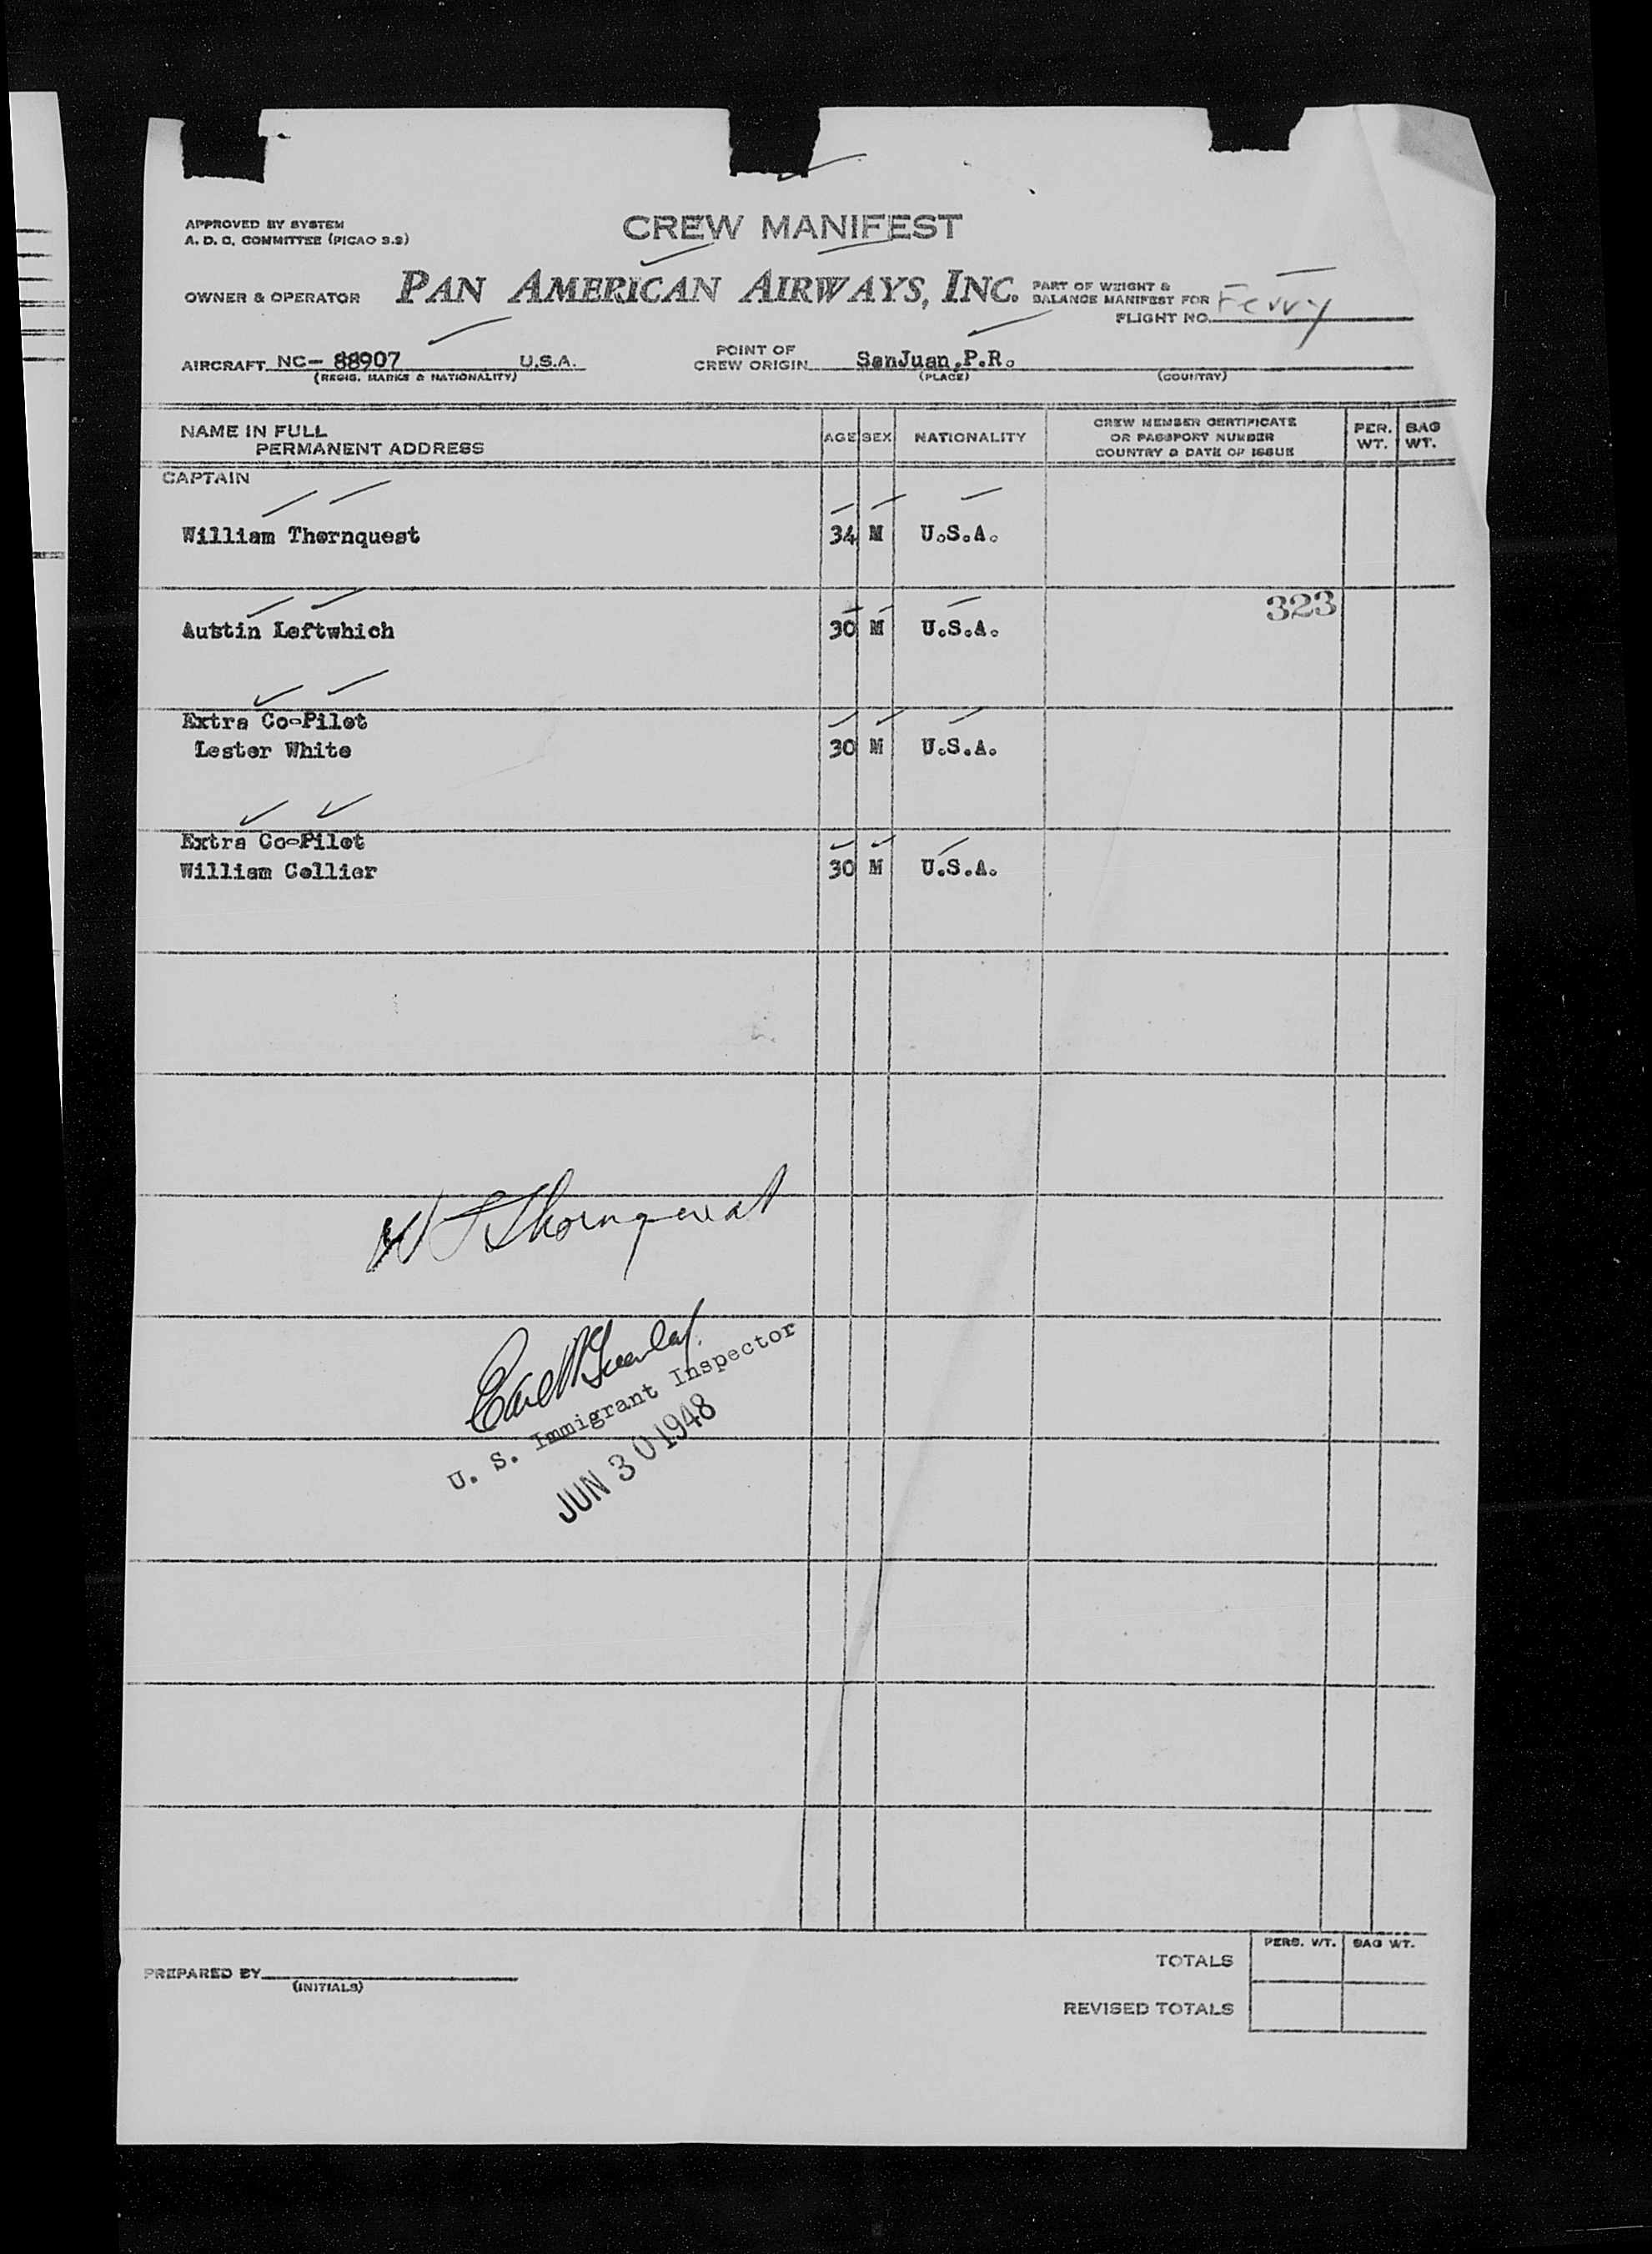 CREW MANIFEST
APPROVED BY SYSTEM
A. D. C. COMMITTEE (PICAO 3.2)
OWNER & OPERATOR PAN AMERICAN AIRWAYS, INC. PART OF WEIGHT &
BALANCE MANIFEST FOR
FLIGHT NO. Ferry
AIRCRAFT NC- 88907 U.S.A. POINT OF
CREW ORIGIN SanJuan,P.R.
(REGIS. MARKS & NATIONALITY) (PLACE) (COUNTRY)
NAME IN FULL
PERMANENT ADDRESS
AGE SEX NATIONALITY
CREW MEMBER CERTIFICATE
OR PASSPORT NUMBER
COUNTRY & DATE OF ISSUE
PER.
WT.
BAG
WT.
CAPTAIN
William Thornquest 34 M U.S.A.
323
Austin Leftwhich 30 M U.S.A.
Extra Co-Pilot
Lester White 30 M U.S.A.
Extra Co-Pilot
William Collier 30 M U.S.A.
W Thornquest
U. S. Immigrant Inspector
JUN 30 1948
PREPARED BY
(INITIALS)
PERS. WT. BAG WT.
TOTALS
REVISED TOTALS